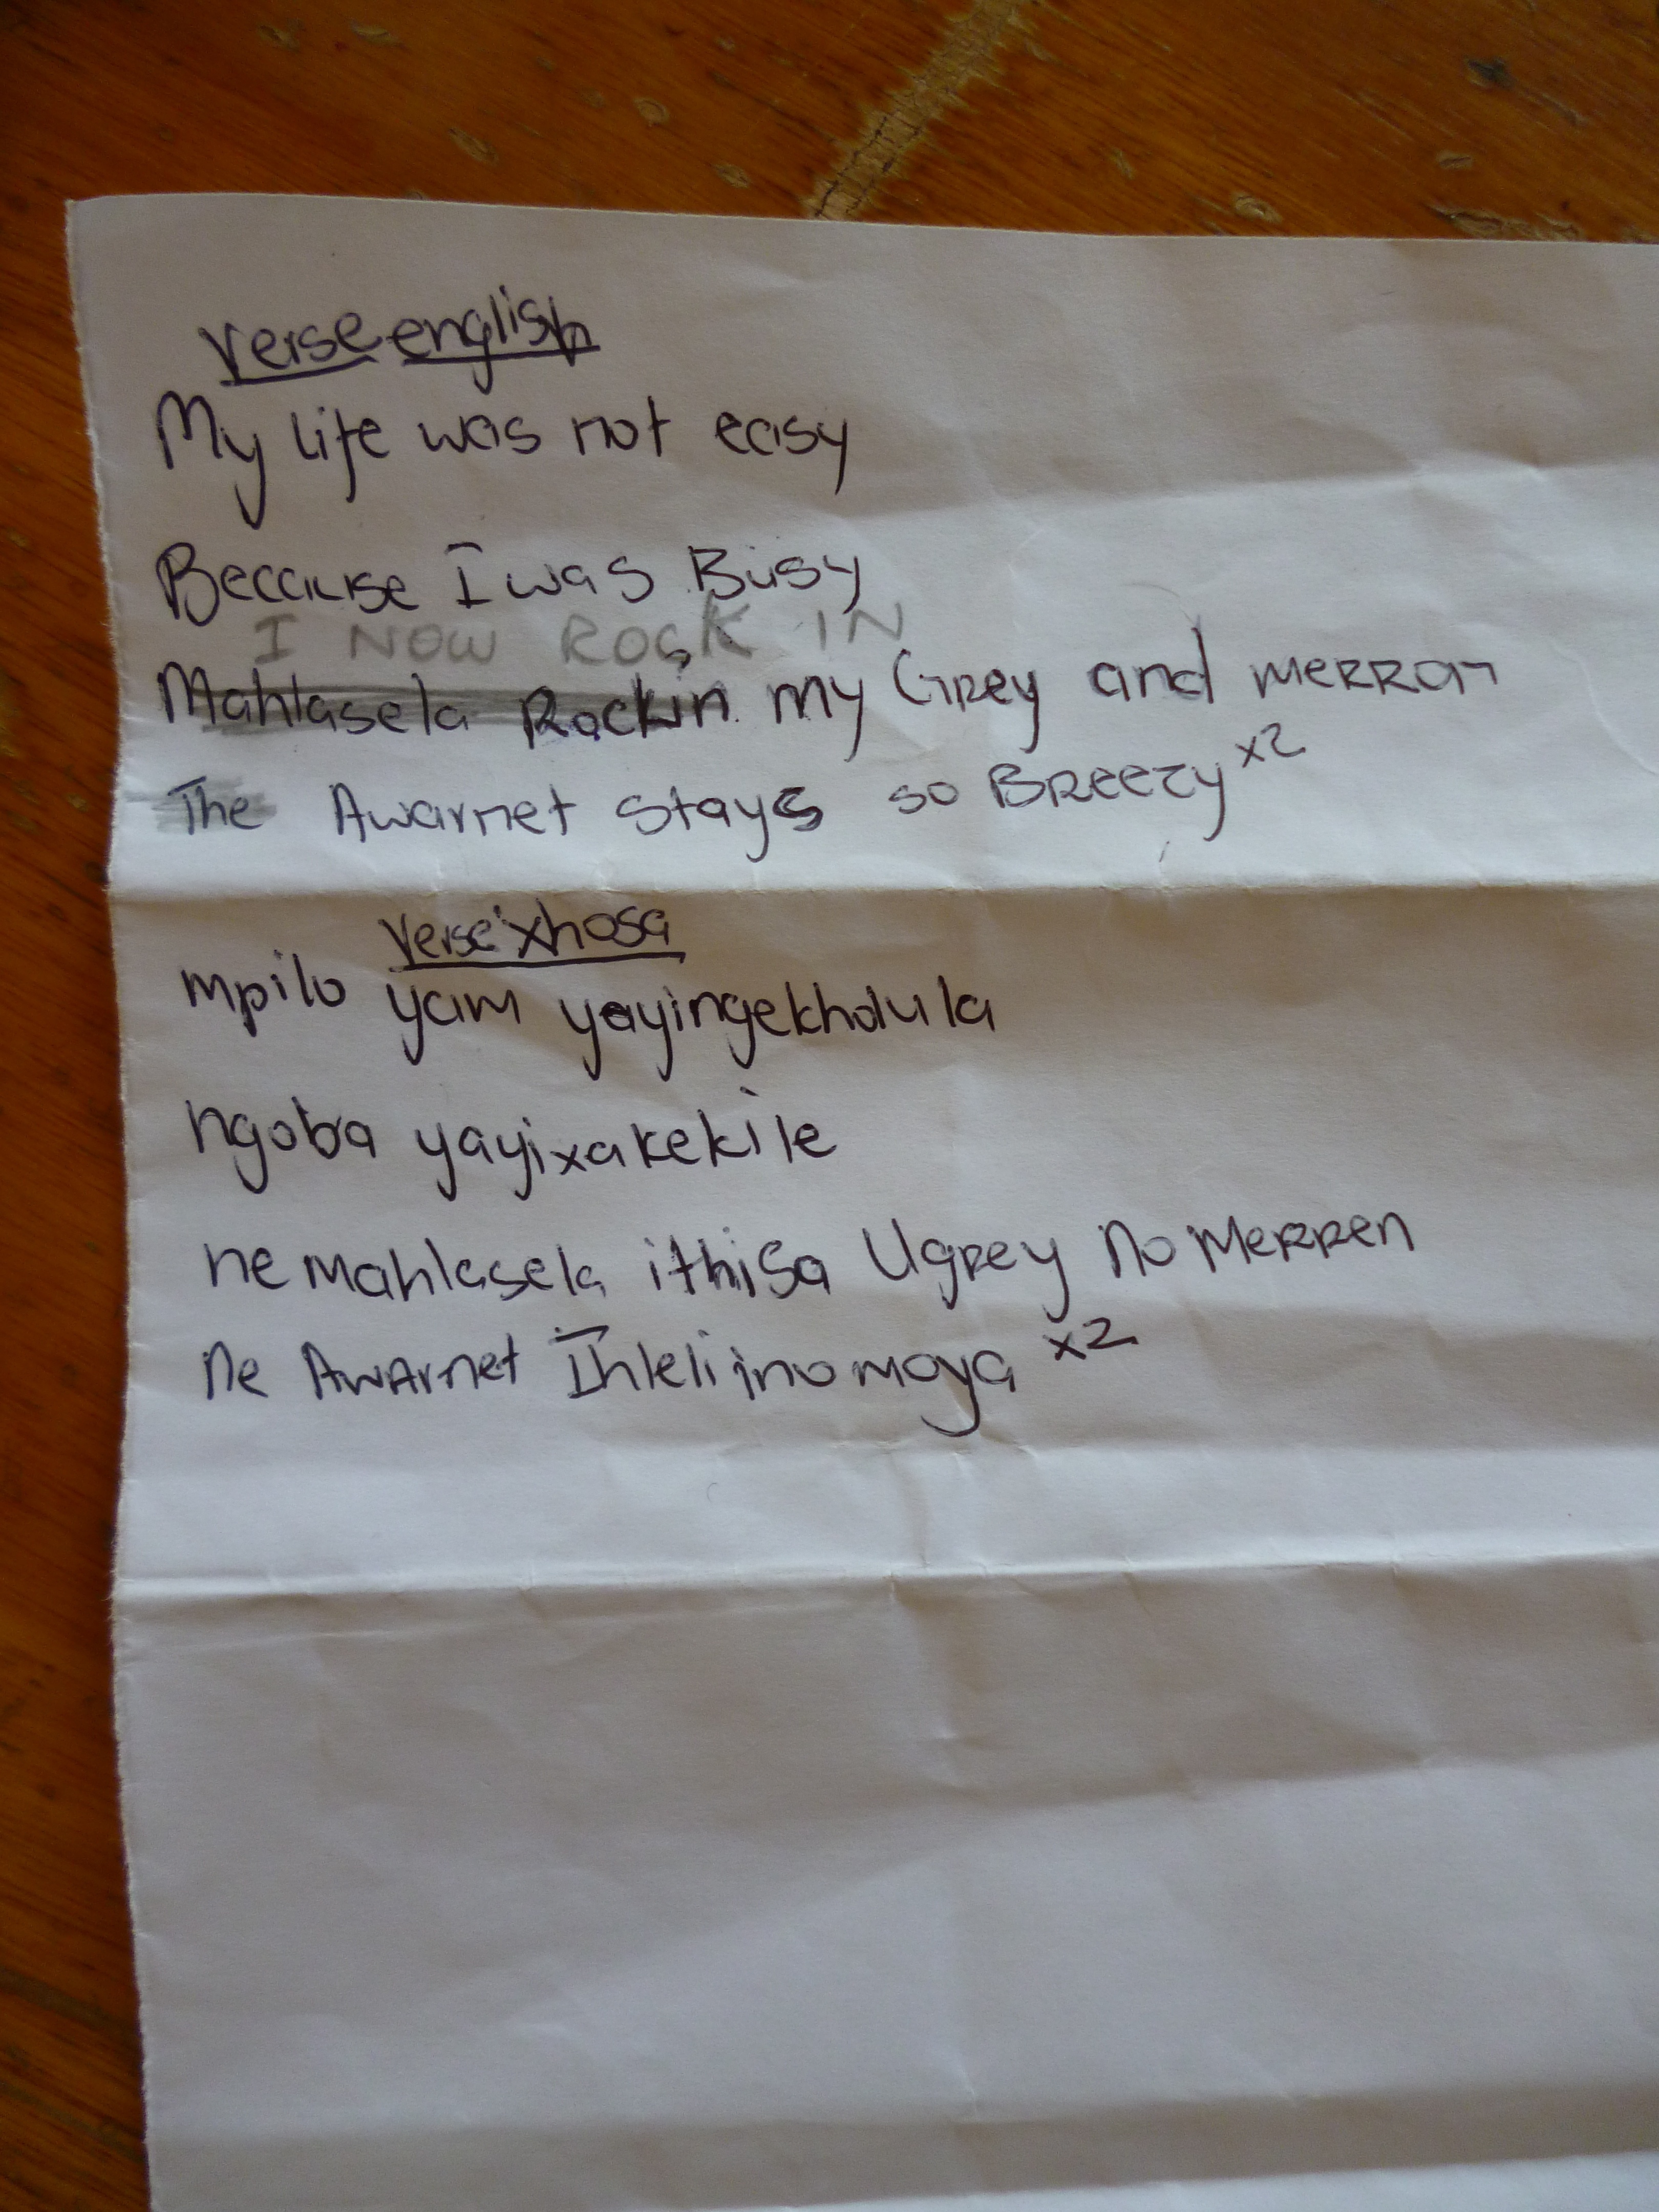 Verse english
My life was not easy
Because I was Busy
I NOW ROCK IN
Mahlasela Rockin my Grey and merran
The Awarnet stays so Breezy x2
Verse Xhosa
mpilo yam yayingekholula
ngoba yayixakekile
ne Mahlasela ithisa Ugrey no Merren
ne Awarnet Ihleli ino moya x2